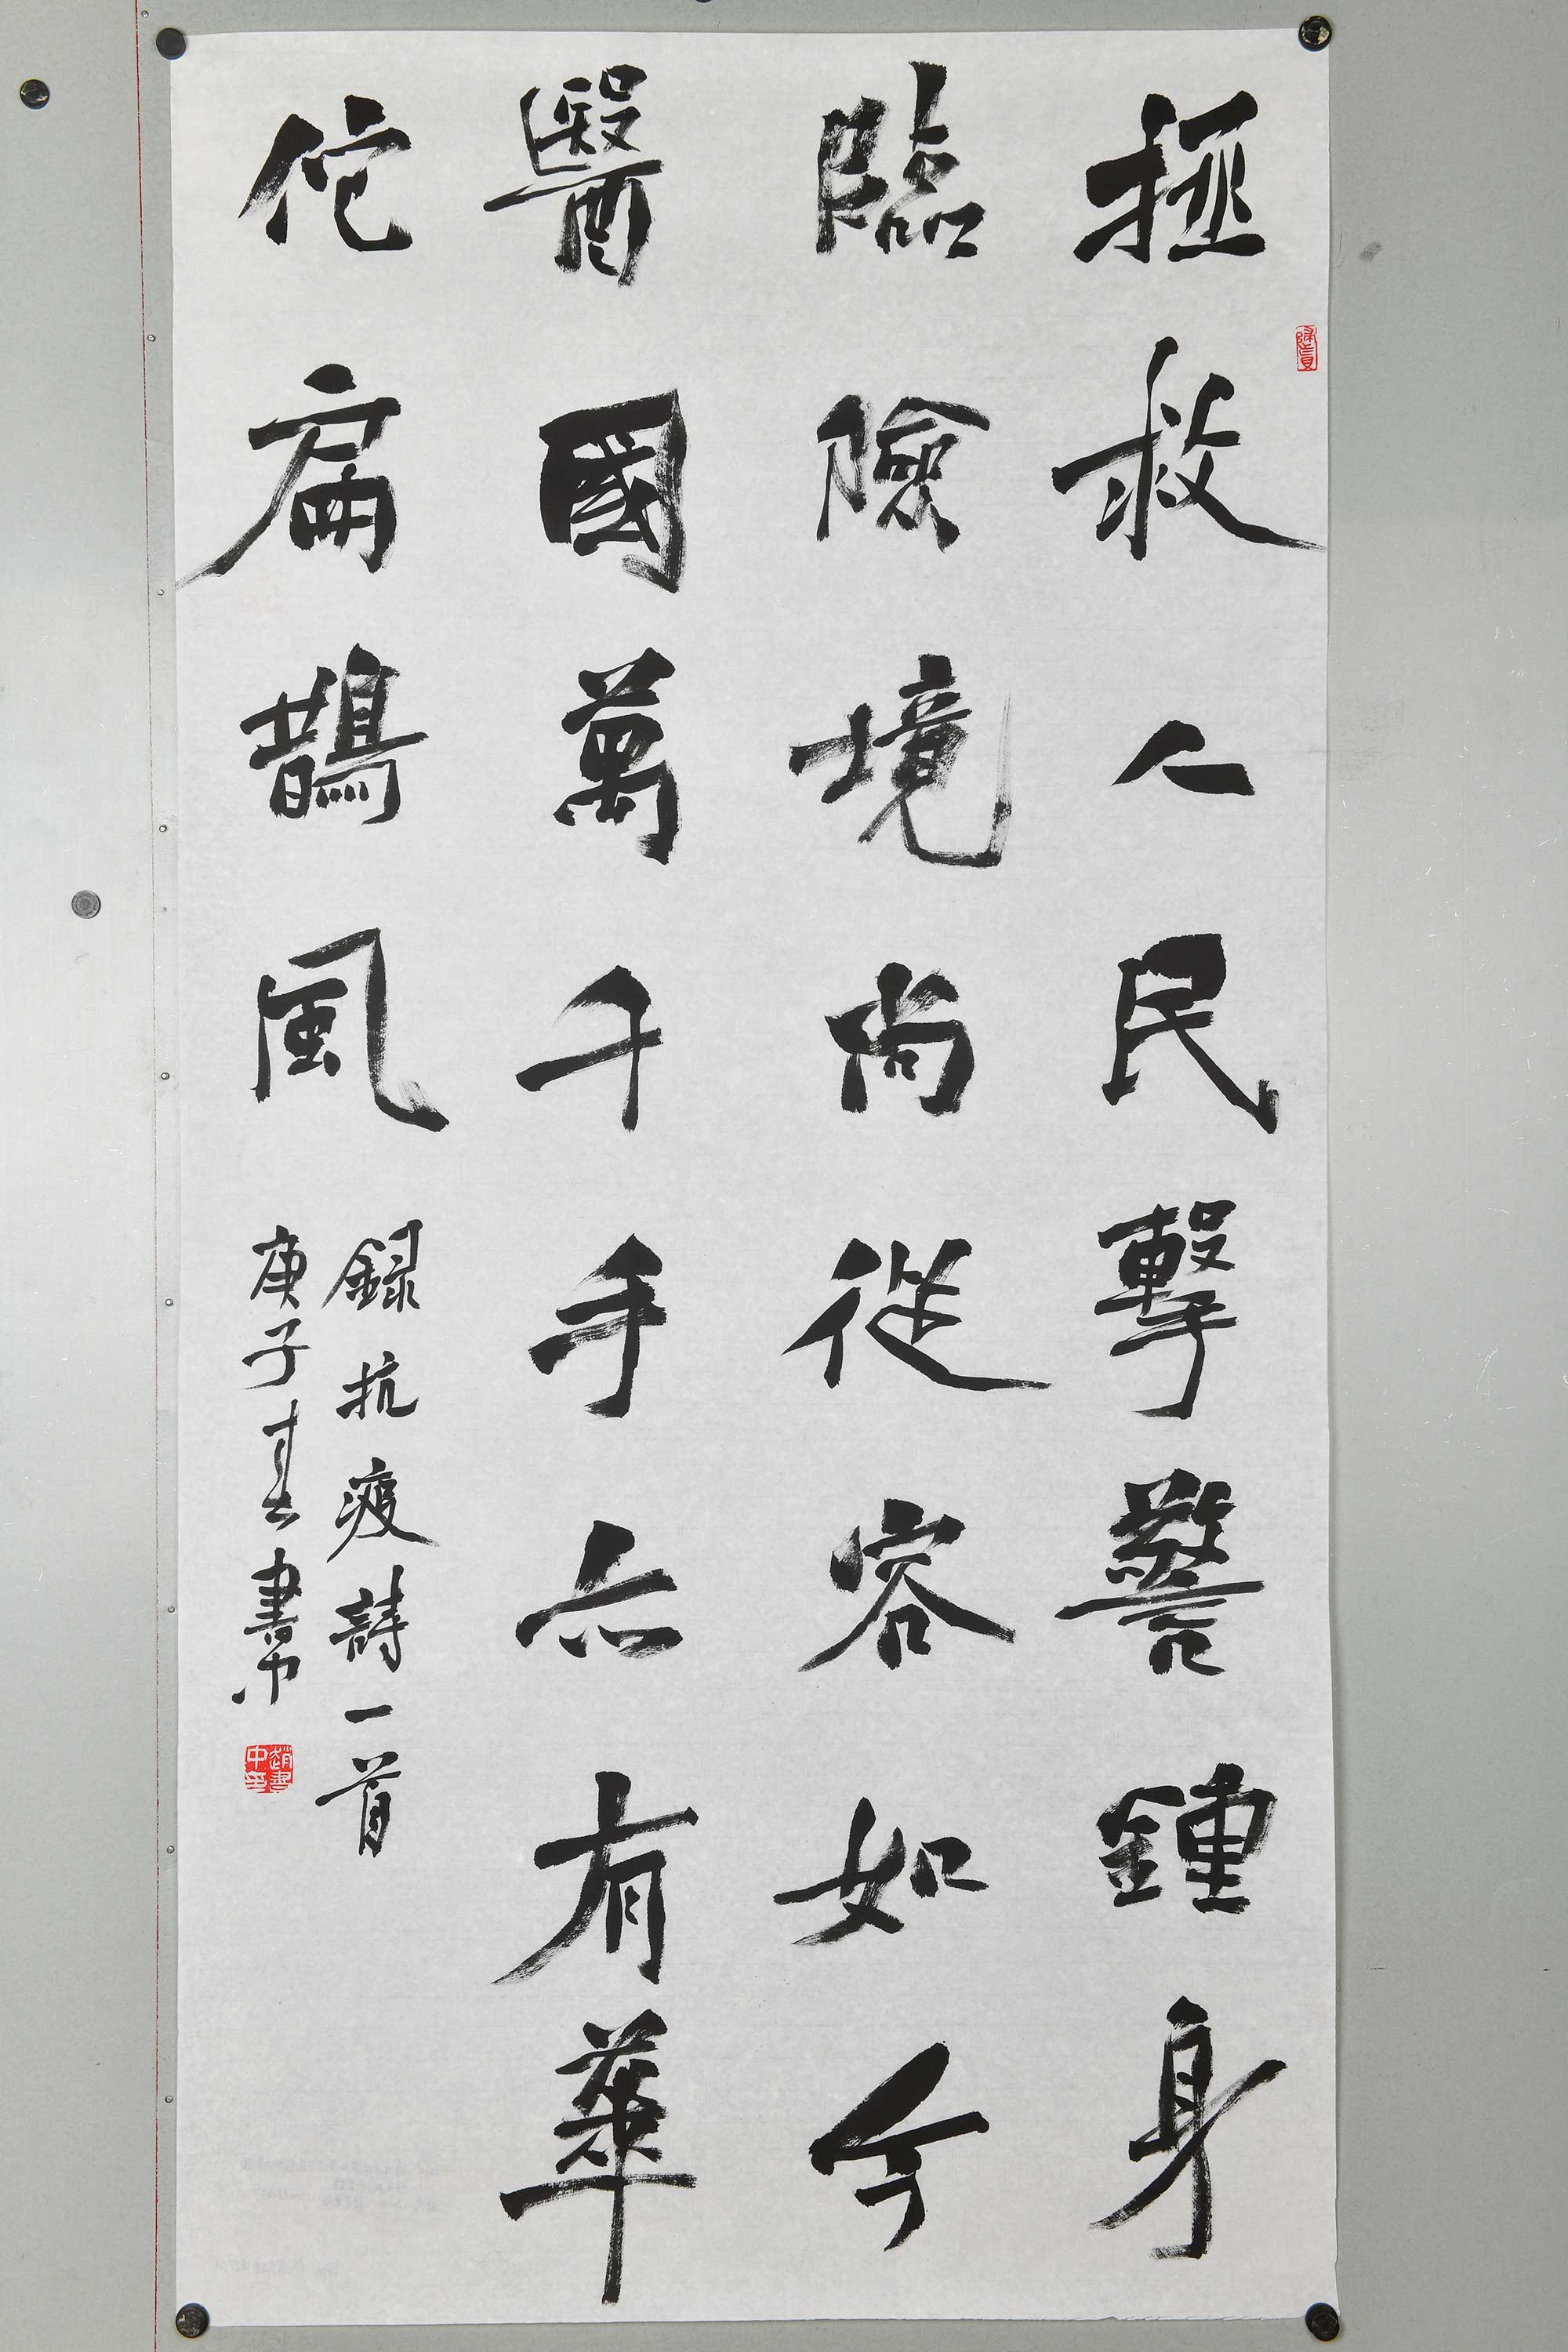 拯救人民擊警鍾身
臨險境尚從容如今
醫國萬千手亦有華
佗扁鵲風
録抗疫詩一首
庚子春書中
趙書中印